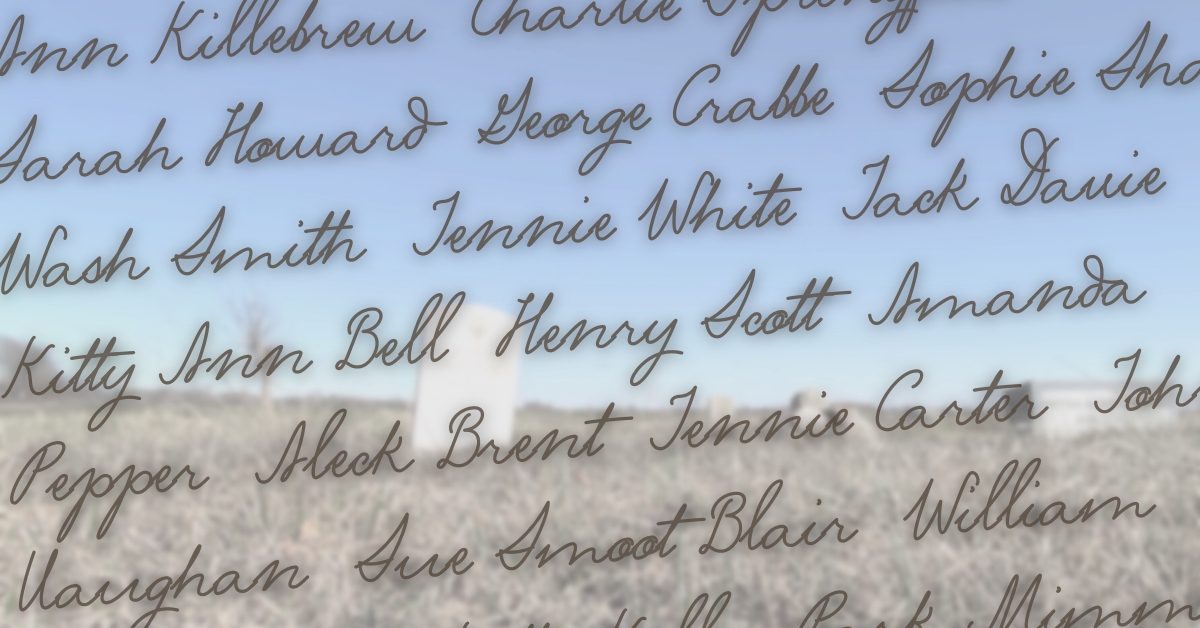 Ann Killebrew Charlie
Sarah Howard George Crabbe Sophie
Wash Smith Jennie White Jack Davie
Kitty Ann Bell Henry Scott Amanda
Pepper Aleck Brent Jennie Carter
Vaughan Sue Smoot Blair William